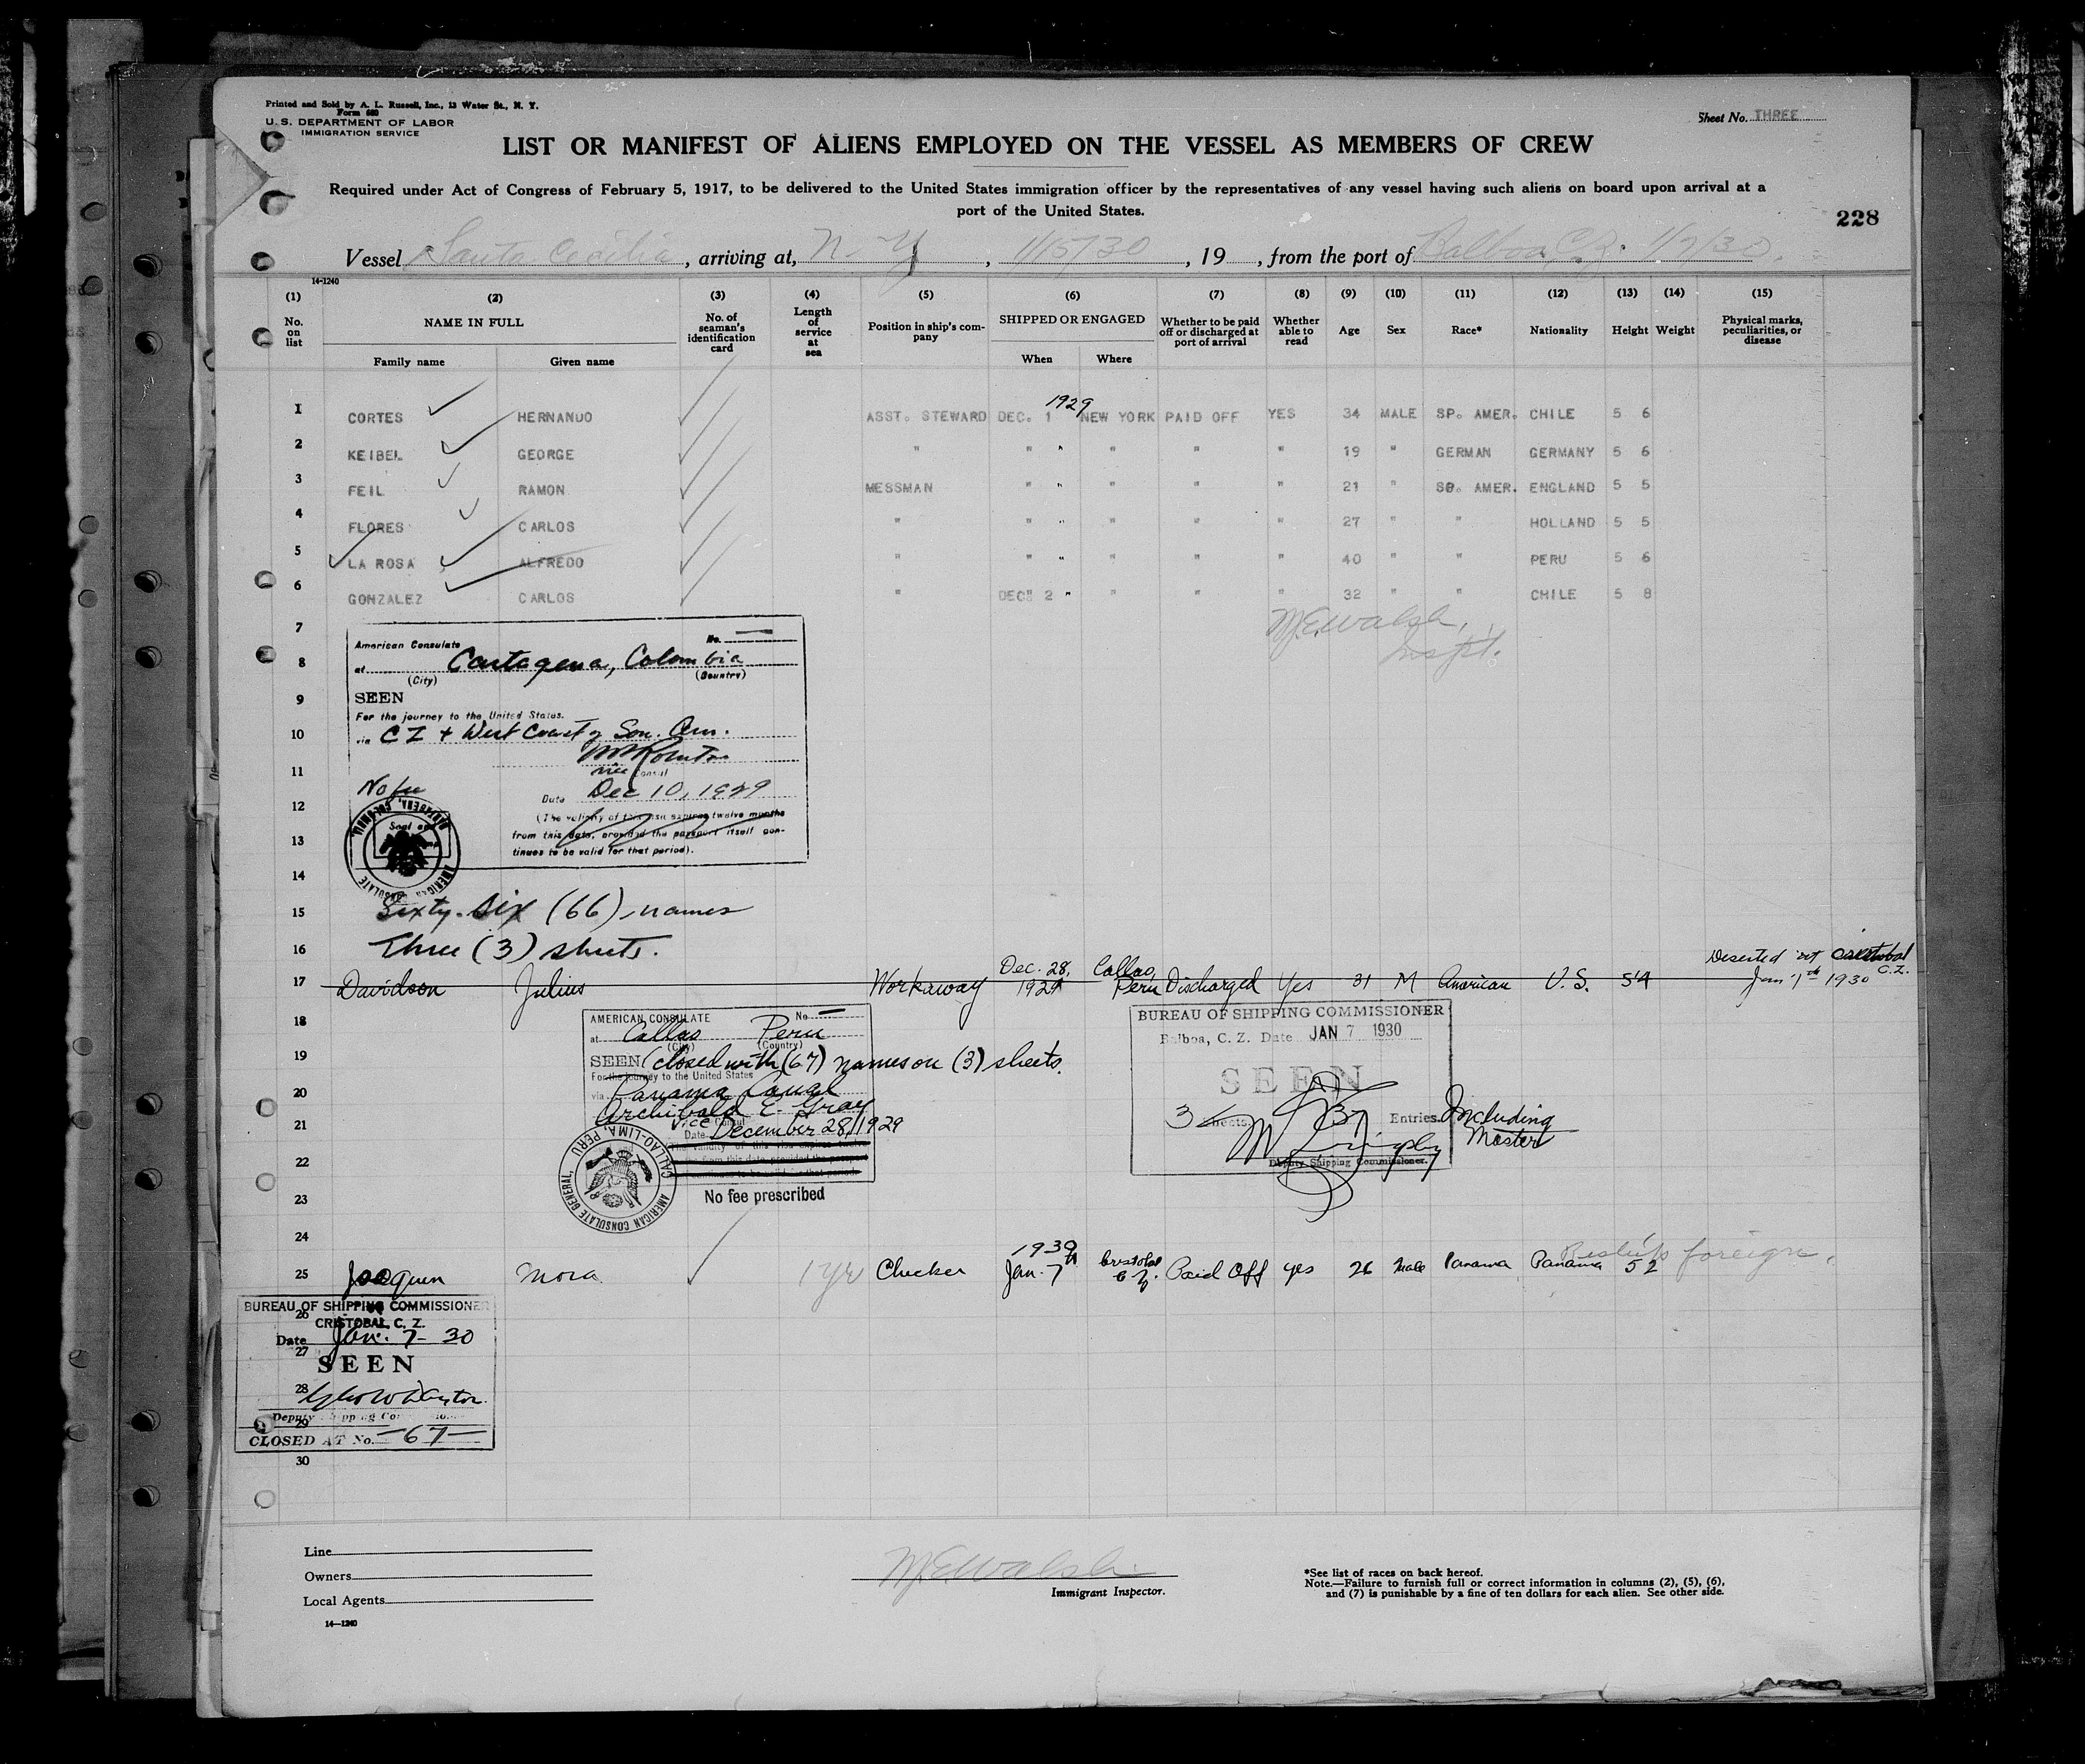 Printed and Sold by A. L. Russell, Inc., 13 Water St., N. Y.
Form 680
U. S. DEPARTMENT OF LABOR
IMMIGRATION SERVICE
Sheet No. THREE
LIST OR MANIFEST OF ALIENS EMPLOYED ON THE VESSEL AS MEMBERS OF CREW
Required under Act of Congress of February 5, 1917, to be delivered to the United States immigration officer by the representatives of any vessel having such aliens on board upon arrival at a
port of the United States.
228
Vessel Santa Cecilia, arriving at, N. Y, 1/15/30, 19 , from the port of Balboa, C.Z. 1/7/30.
14-1240
(1) (2) (3) (4) (5) (6) (7) (8) (9) (10) (11) (12) (13) (14) (15)
No. on list NAME IN FULL Family name Given name No. of seaman's identification card Length of service at sea Position in ship's company SHIPPED OR ENGAGED When Where Whether to be paid off or discharged at port of arrival Whether able to read Age Sex Race* Nationality Height Weight Physical marks, peculiarities, or disease
1929
1 CORTES HERNANDO ASST. STEWARD DEC. 1 NEW YORK PAID OFF YES 34 MALE SP. AMER. CHILE 5 6
2 KEIBEL GEORGE " " " " " " 19 " GERMAN GERMANY 5 6
3 FEIL RAMON MESSMAN " " " " " 21 " SP. AMER. ENGLAND 5 5
4 FLORES CARLOS " " " " " " 27 " " HOLLAND 5 5
5 LA ROSA ALFREDO " " " " " " 40 " " PERU 5 6
6 GONZALEZ CARLOS " DEC" 2 " " " " 32 " " CHILE 5 8
M.E. Walsh,
Inspt.
7
American Consulate No.
8
at Cartagena, Colombia
(City) (Country)
9 SEEN
For the journey to the United States.
10 via C Z + West Coast of Sou. Am.
11 Vice Consul
No fee
Date Dec 10, 1929
12
(The validity of this visa expires twelve months
13 from this date, provided the passport itself con-
tinues to be valid for that period).
Seal
AMERICAN CONSULATE
14
15 Sixty-six (66) names
16 Three (3) sheets.
Deserted at Cristobal C.Z.
Jan 7th 1930
17 Davidson Julius Workaway Dec. 28, 1929 Callao, Peru Discharged Yes 31 M American U. S. 5'4
18
AMERICAN CONSULATE No
at Callao Peru
(City) (Country)
19 SEEN (closed with (67) names on (3) sheets.
For the journey to the United States
20 via Panama Canal
Archibald E. Gray
21 Vice Consul
Date December 28/1929
22
23
AMERICAN CONSULATE GENERAL, CALLAO-LIMA, PERU
No fee prescribed
BUREAU OF SHIPPING COMMISSIONER
Balboa, C. Z. Date JAN 7 1930
SEEN
3 Sheets 37 Entries. Including
Master
Deputy Shipping Commissioner.
24
25 Joaquin Mora 1 yr Checker 1930 Jan. 7th Cristobal C Z. Paid Off yes 26 Male Panama Panama 5 2
Reships foreign.
BUREAU OF SHIPPING COMMISSIONER
26 CRISTOBAL, C. Z.
Date Jan. 7- 30
27
SEEN
28
Deputy Shipping Commissioner
29
CLOSED AT No. -67-
30
Line
Owners
Local Agents
14-1240
M.E. Walsh
Immigrant Inspector.
*See list of races on back hereof.
Note.—Failure to furnish full or correct information in columns (2), (5), (6),
and (7) is punishable by a fine of ten dollars for each alien. See other side.